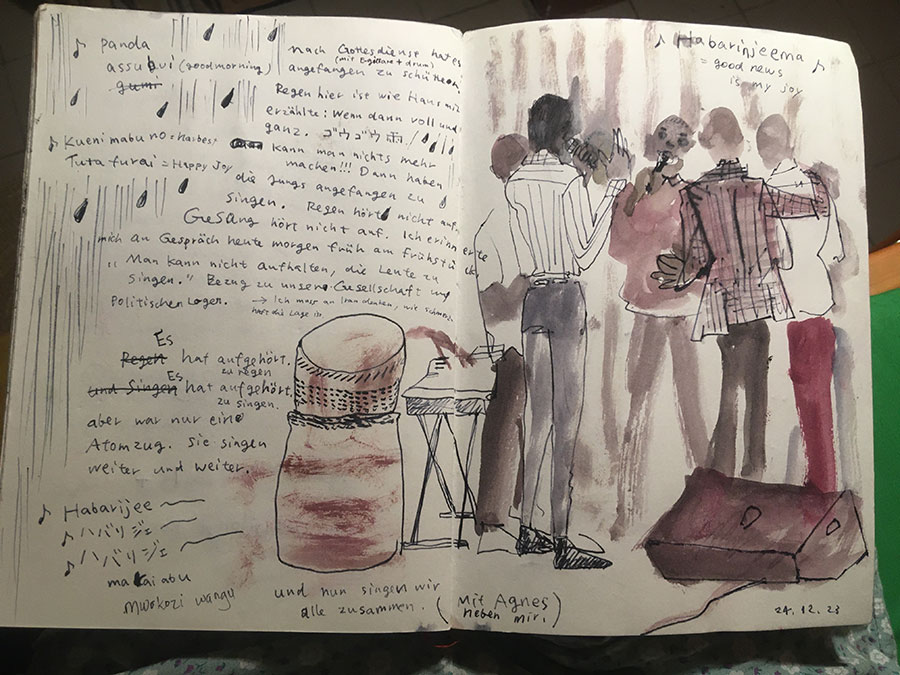 ♪ panda
assubui (goodmorning)
gumi
♪ Kueni mabuno = Harbest
Tuta furai = Happy Joy
nach Gottesdienst hat es
(mit E-gitarre + drum)
angefangen zu schütten.
Regen hier ist wie Hans mir
erzählte: Wenn dann voll und
ganz. ゴウゴウ雨 /
kann man nichts mehr
machen!!! Dann haben
die Jungs angefangen zu
singen. Regen hört nicht auf,
Gesang hört nicht auf. Ich erinnerte
mich an Gespräch heute morgen früh am Frühstück
„Man kann nicht aufhalten, die Leute zu
singen." Bezug zu unsere Gesellschaft und
Politischen Lager.
→ Ich muss an Iran denken, wie
die Lage is
Es
Regen hat aufgehört.
zu regen
Es
und Singen hat aufgehört
zu singen.
aber war nur eine
Atomzug. Sie singen
weiter und weiter.
♪ Habarijee
♪ ハバリジェ
♪ ハバリジェ
makai abu
Mwokozi wangu
und nun singen wir
alle zusammen. (Mit Agnes
neben mir.)
♪ Habarinjeema ♪
= good news
is my joy
24.12.23